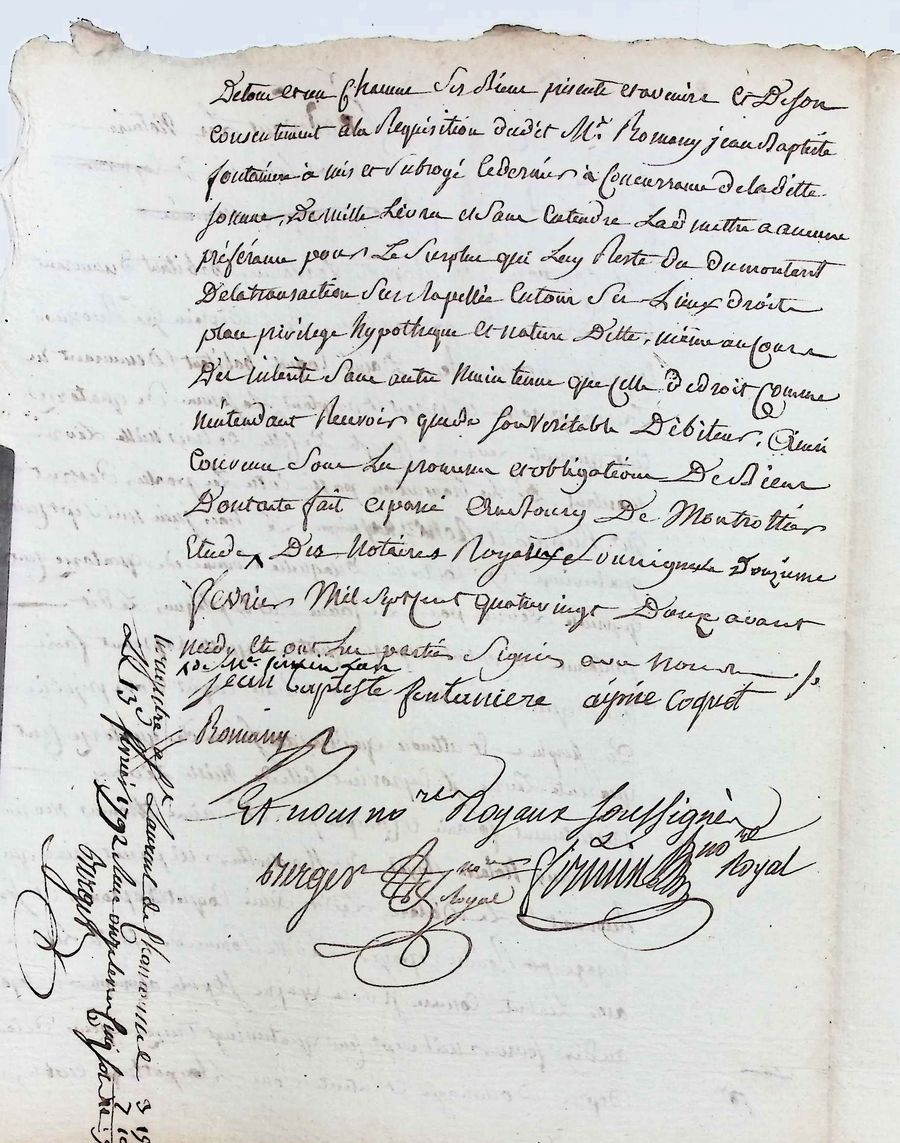 De tout et un chacune ses biens présents et avenire et De son
consentement à la Requisition dudit Mr. Romany jean Baptiste
fontaniere a mis et subrogé le dernier à Concurrance de la ditte
somme, De mille Livres et sans entendre L'admettre a aucune
préférance pour Le surplus qui Luy Reste du du montant
De la transaction sus Rapellée en tous ses Lieux droits
place privilege hypotheque et nature Dette, même au cours
Des interets sans autre maintenue que celle De droit Comme
n'entendant Recevoir que de son veritable Débiteur; Ainsi
Convenu sous les promesses et obligations De Biens
Dont acte fait et passé au Bourg De Montrottier
Etude ^ Des Notaires Royaux Soussignés le Douzieme
fevrier Mil sept cent quatre vingt Douze avant
midy et ont les parties signés avec nous
^ de Mr. firmin l'an
jean baptiste fontaniere aipné Coquet
Romany
Et nous nores Royaux soussignés
Berger nore Royal firmin nore Royal
Laurent de Chamousset
Le 13 fevrier 1792
Berger